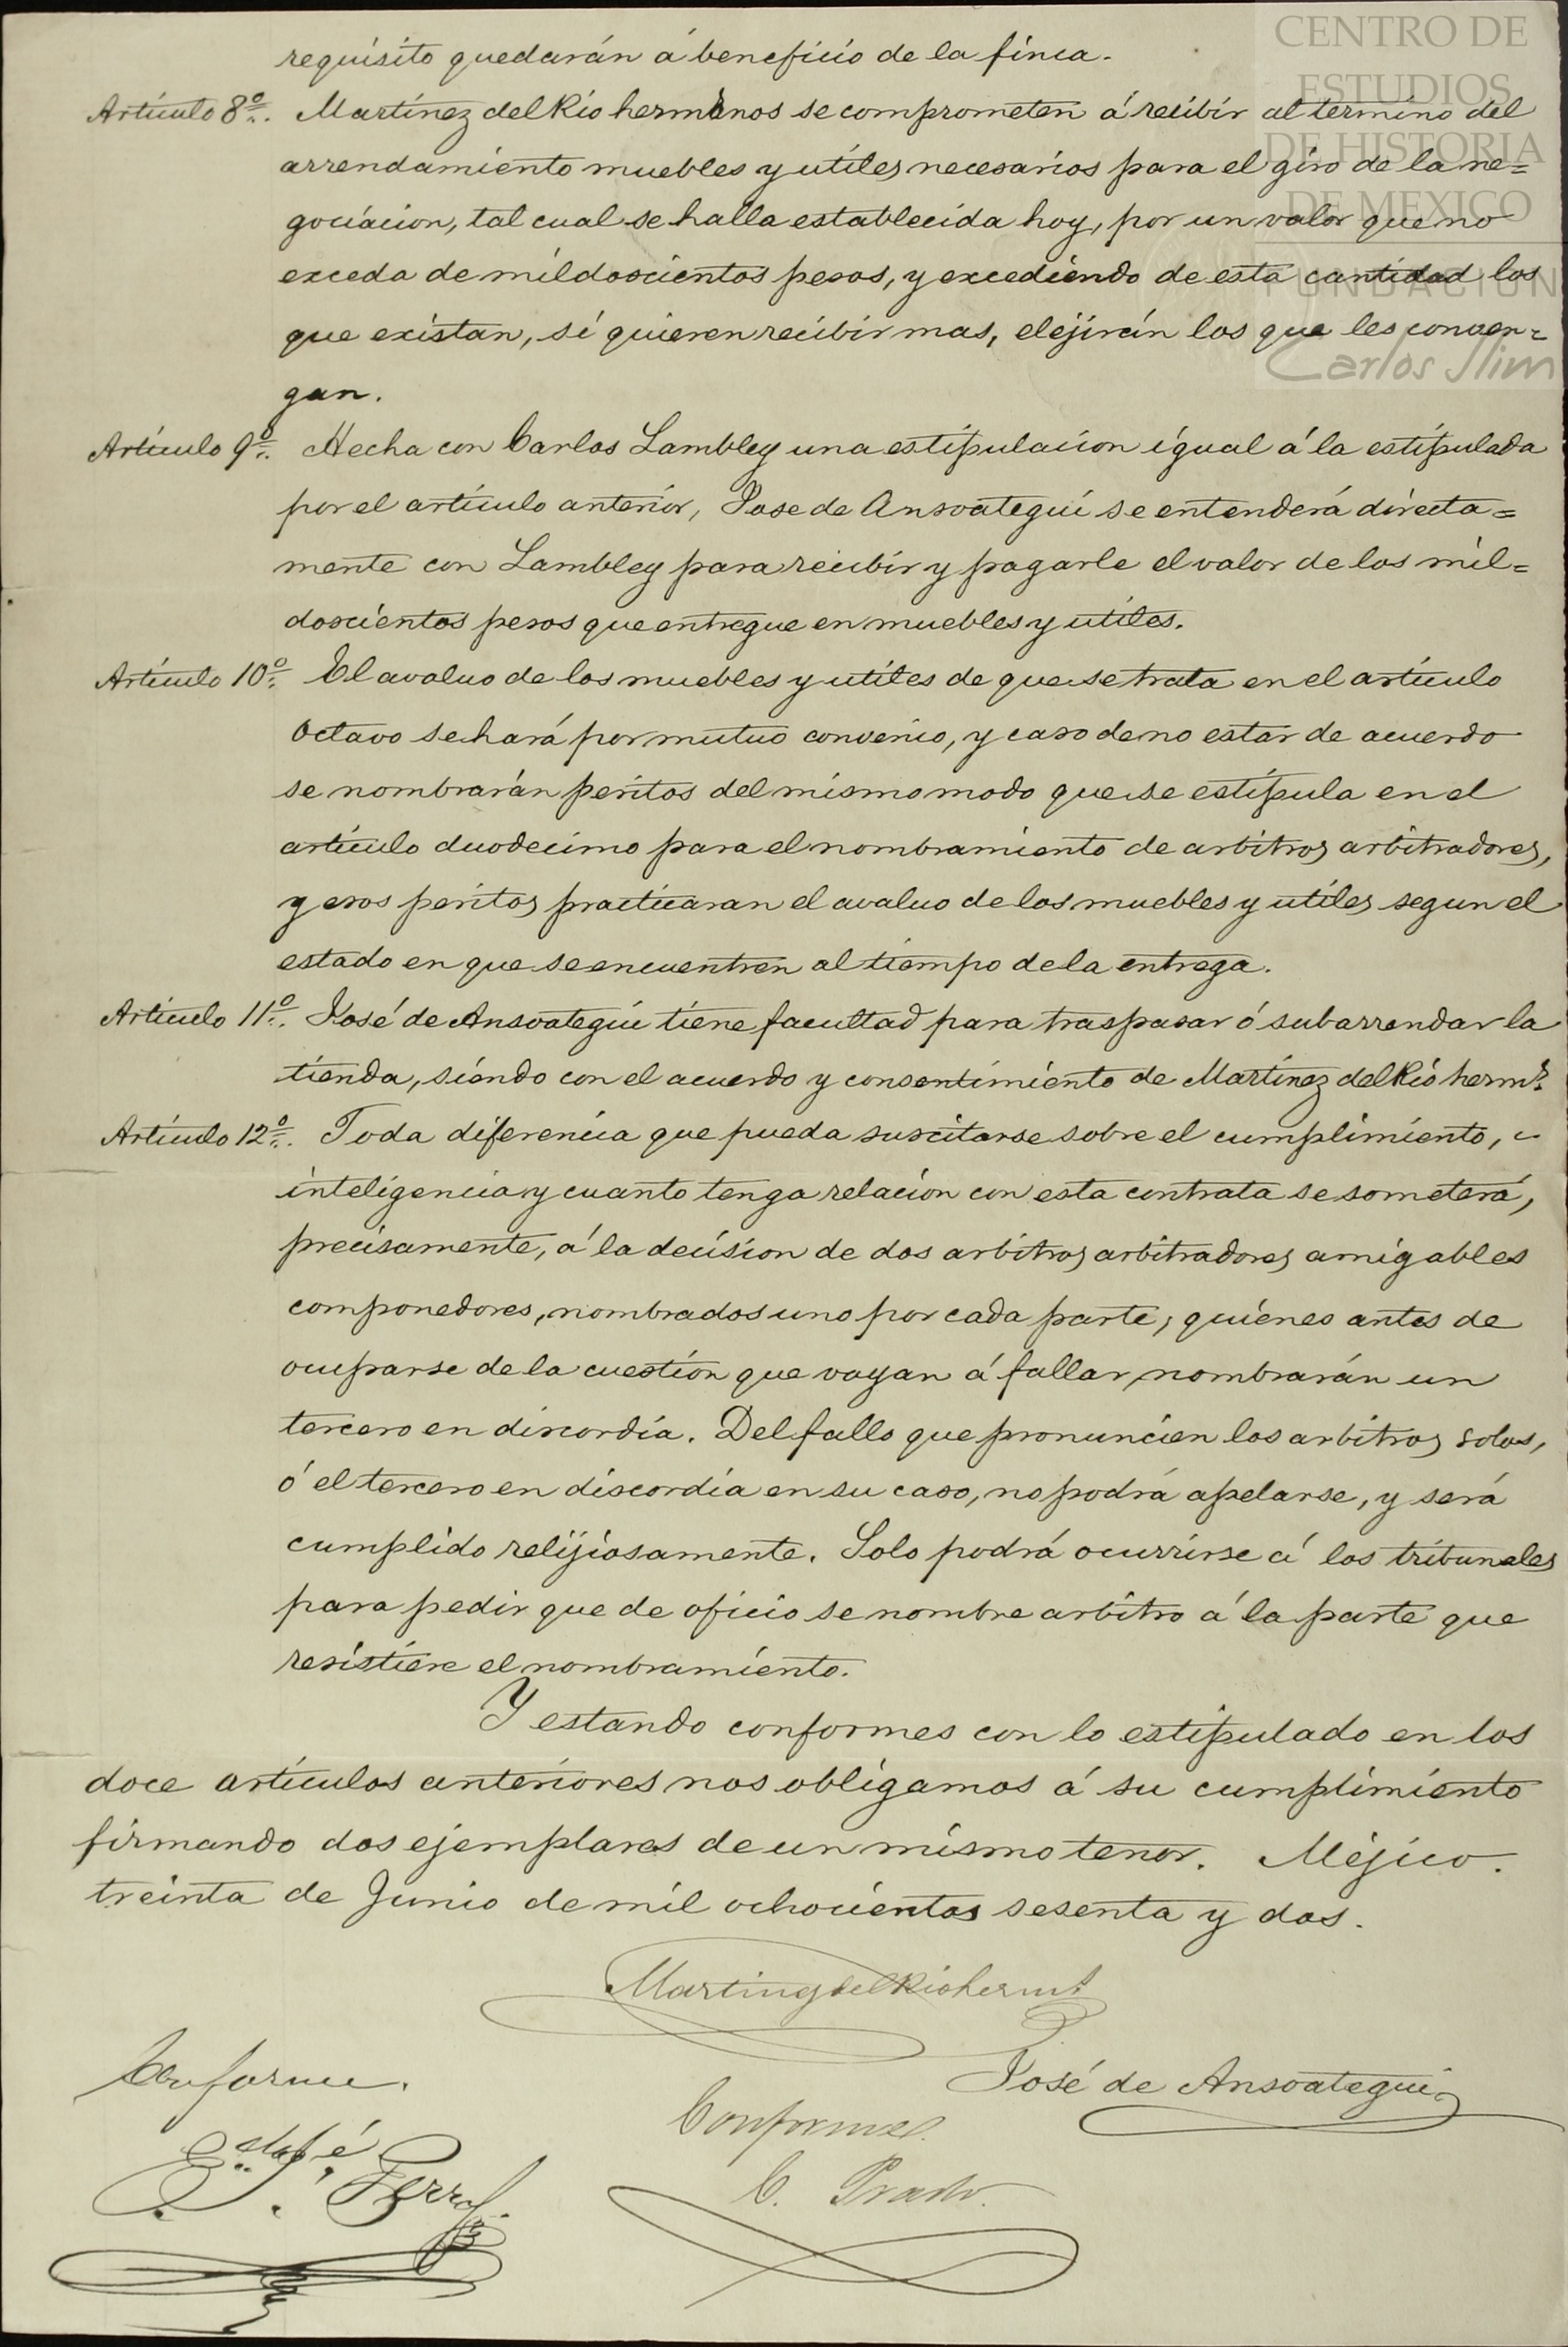 CENTRO DE
ESTUDIOS
DE HISTORIA
DE MEXICO
FUNDACION
Carlos Slim
requisito quedarán á beneficio de la finca.
Artículo 8º. Martínez del Río hermanos se comprometen á recibir al termino del
arrendamiento muebles y utiles necesarios para el giro de la ne=
gociacion, tal cual se halla establecida hoy, por un valor que no
exceda de mil doscientos pesos, y excediendo de esta cantidad los
que existan, si quieren recibir mas, elejirán los que les conven=
gan.
Artículo 9º. Hecha con Carlos Lambley una estipulacion igual á la estipulada
por el artículo anterior, Jose de Ansoategui se entenderá directa=
mente con Lambley para recibir y pagarle el valor de los mil=
doscientos pesos que entregue en muebles y utiles.
Artículo 10º. El avaluo de los muebles y utiles de que se trata en el artículo
octavo se hará por mutuo convenio, y caso de no estar de acuerdo
se nombrarán peritos del mismo modo que se estipula en el
artículo duodecimo para el nombramiento de arbitros arbitradores,
y esos peritos practicaran el avaluo de los muebles y utiles segun el
estado en que se encuentren al tiempo de la entrega.
Artículo 11º. José de Ansoategui tiene facultad para traspasar ó subarrendar la
tienda, siendo con el acuerdo y consentimiento de Martínez del Río hermˢ.
Artículo 12º. Toda diferencia que pueda suscitarse sobre el cumplimiento,
inteligencia y cuanto tenga relacion con esta contrata se someterá,
precisamente, á la decision de dos arbitros arbitradores amigables
componedores, nombrados uno por cada parte, quienes antes de
ocuparse de la cuestion que vayan á fallar, nombrarán un
tercero en discordia. Del fallo que pronuncien los arbitros solos,
ó el tercero en discordia en su caso, no podrá apelarse, y será
cumplido relijiosamente. Solo podrá ocurrirse á los tribunales
para pedir que de oficio se nombre arbitro á la parte que
resistiere el nombramiento.
Y estando conformes con lo estipulado en los
doce artículos anteriores nos obligamos á su cumplimiento
firmando dos ejemplares de un mismo tenor. Méjico.
treinta de Junio de mil ochocientos sesenta y dos.
Martinez del Rio hermˢ
José de Ansoategui
Conforme.
Conforme.
C. Prado.